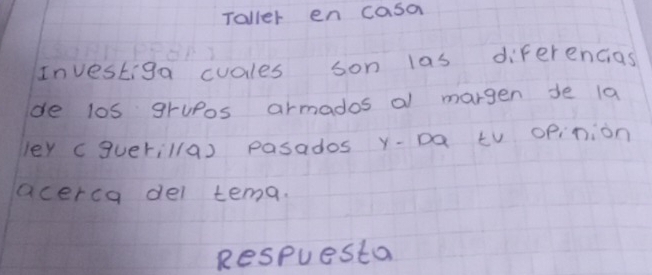 Taller en casa
Investiga cuales son las diferencias
de los grupos armados al margen de la
ley (guerilla) pasados y - Da tu opinión
acerca del tema.
Respuesta